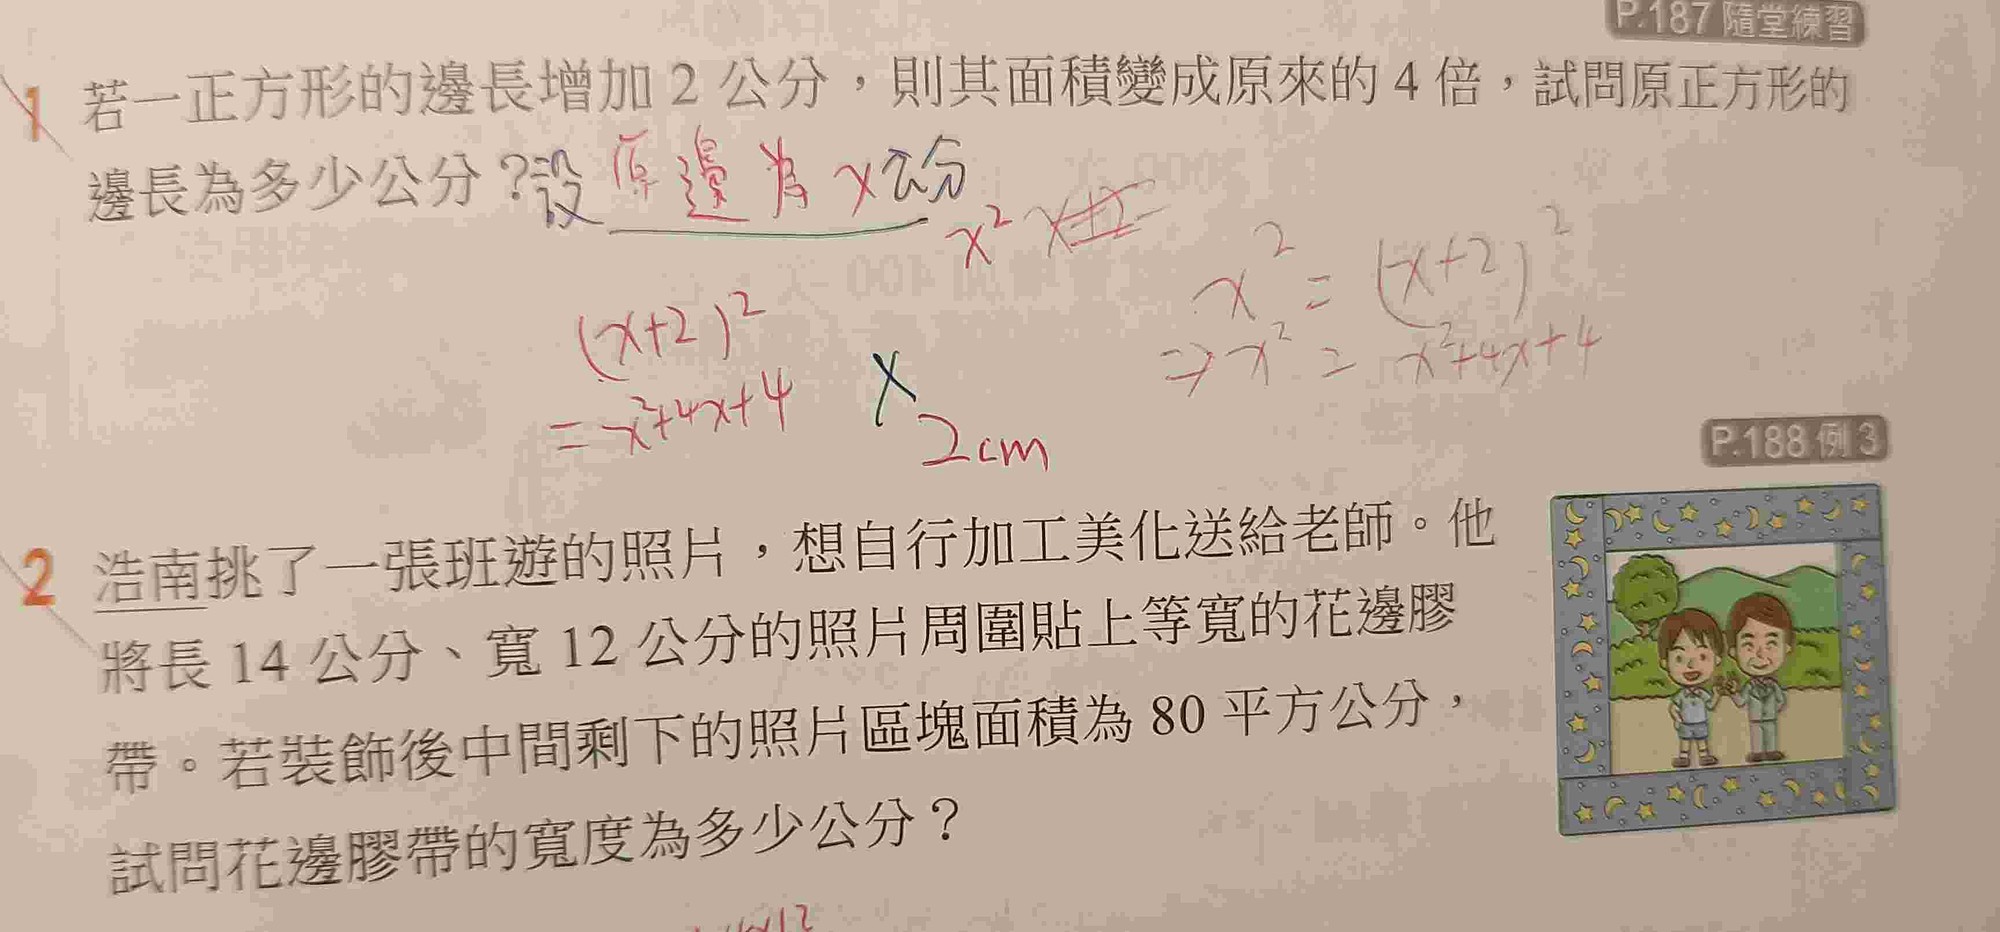 P.187 隨堂練習
1 若一正方形的邊長增加 2 公分，則其面積變成原來的 4 倍，試問原正方形的
邊長為多少公分？設原邊為x公分
x²
x² = (x+2)²
(x+2)²
⇒ x² = x²+4x+4
= x²+4x+4
x
2cm
P.188 例 3
2 浩南挑了一張班遊的照片，想自行加工美化送給老師。他
將長 14 公分、寬 12 公分的照片周圍貼上等寬的花邊膠
帶。若裝飾後中間剩下的照片區塊面積為 80 平方公分，
試問花邊膠帶的寬度為多少公分？